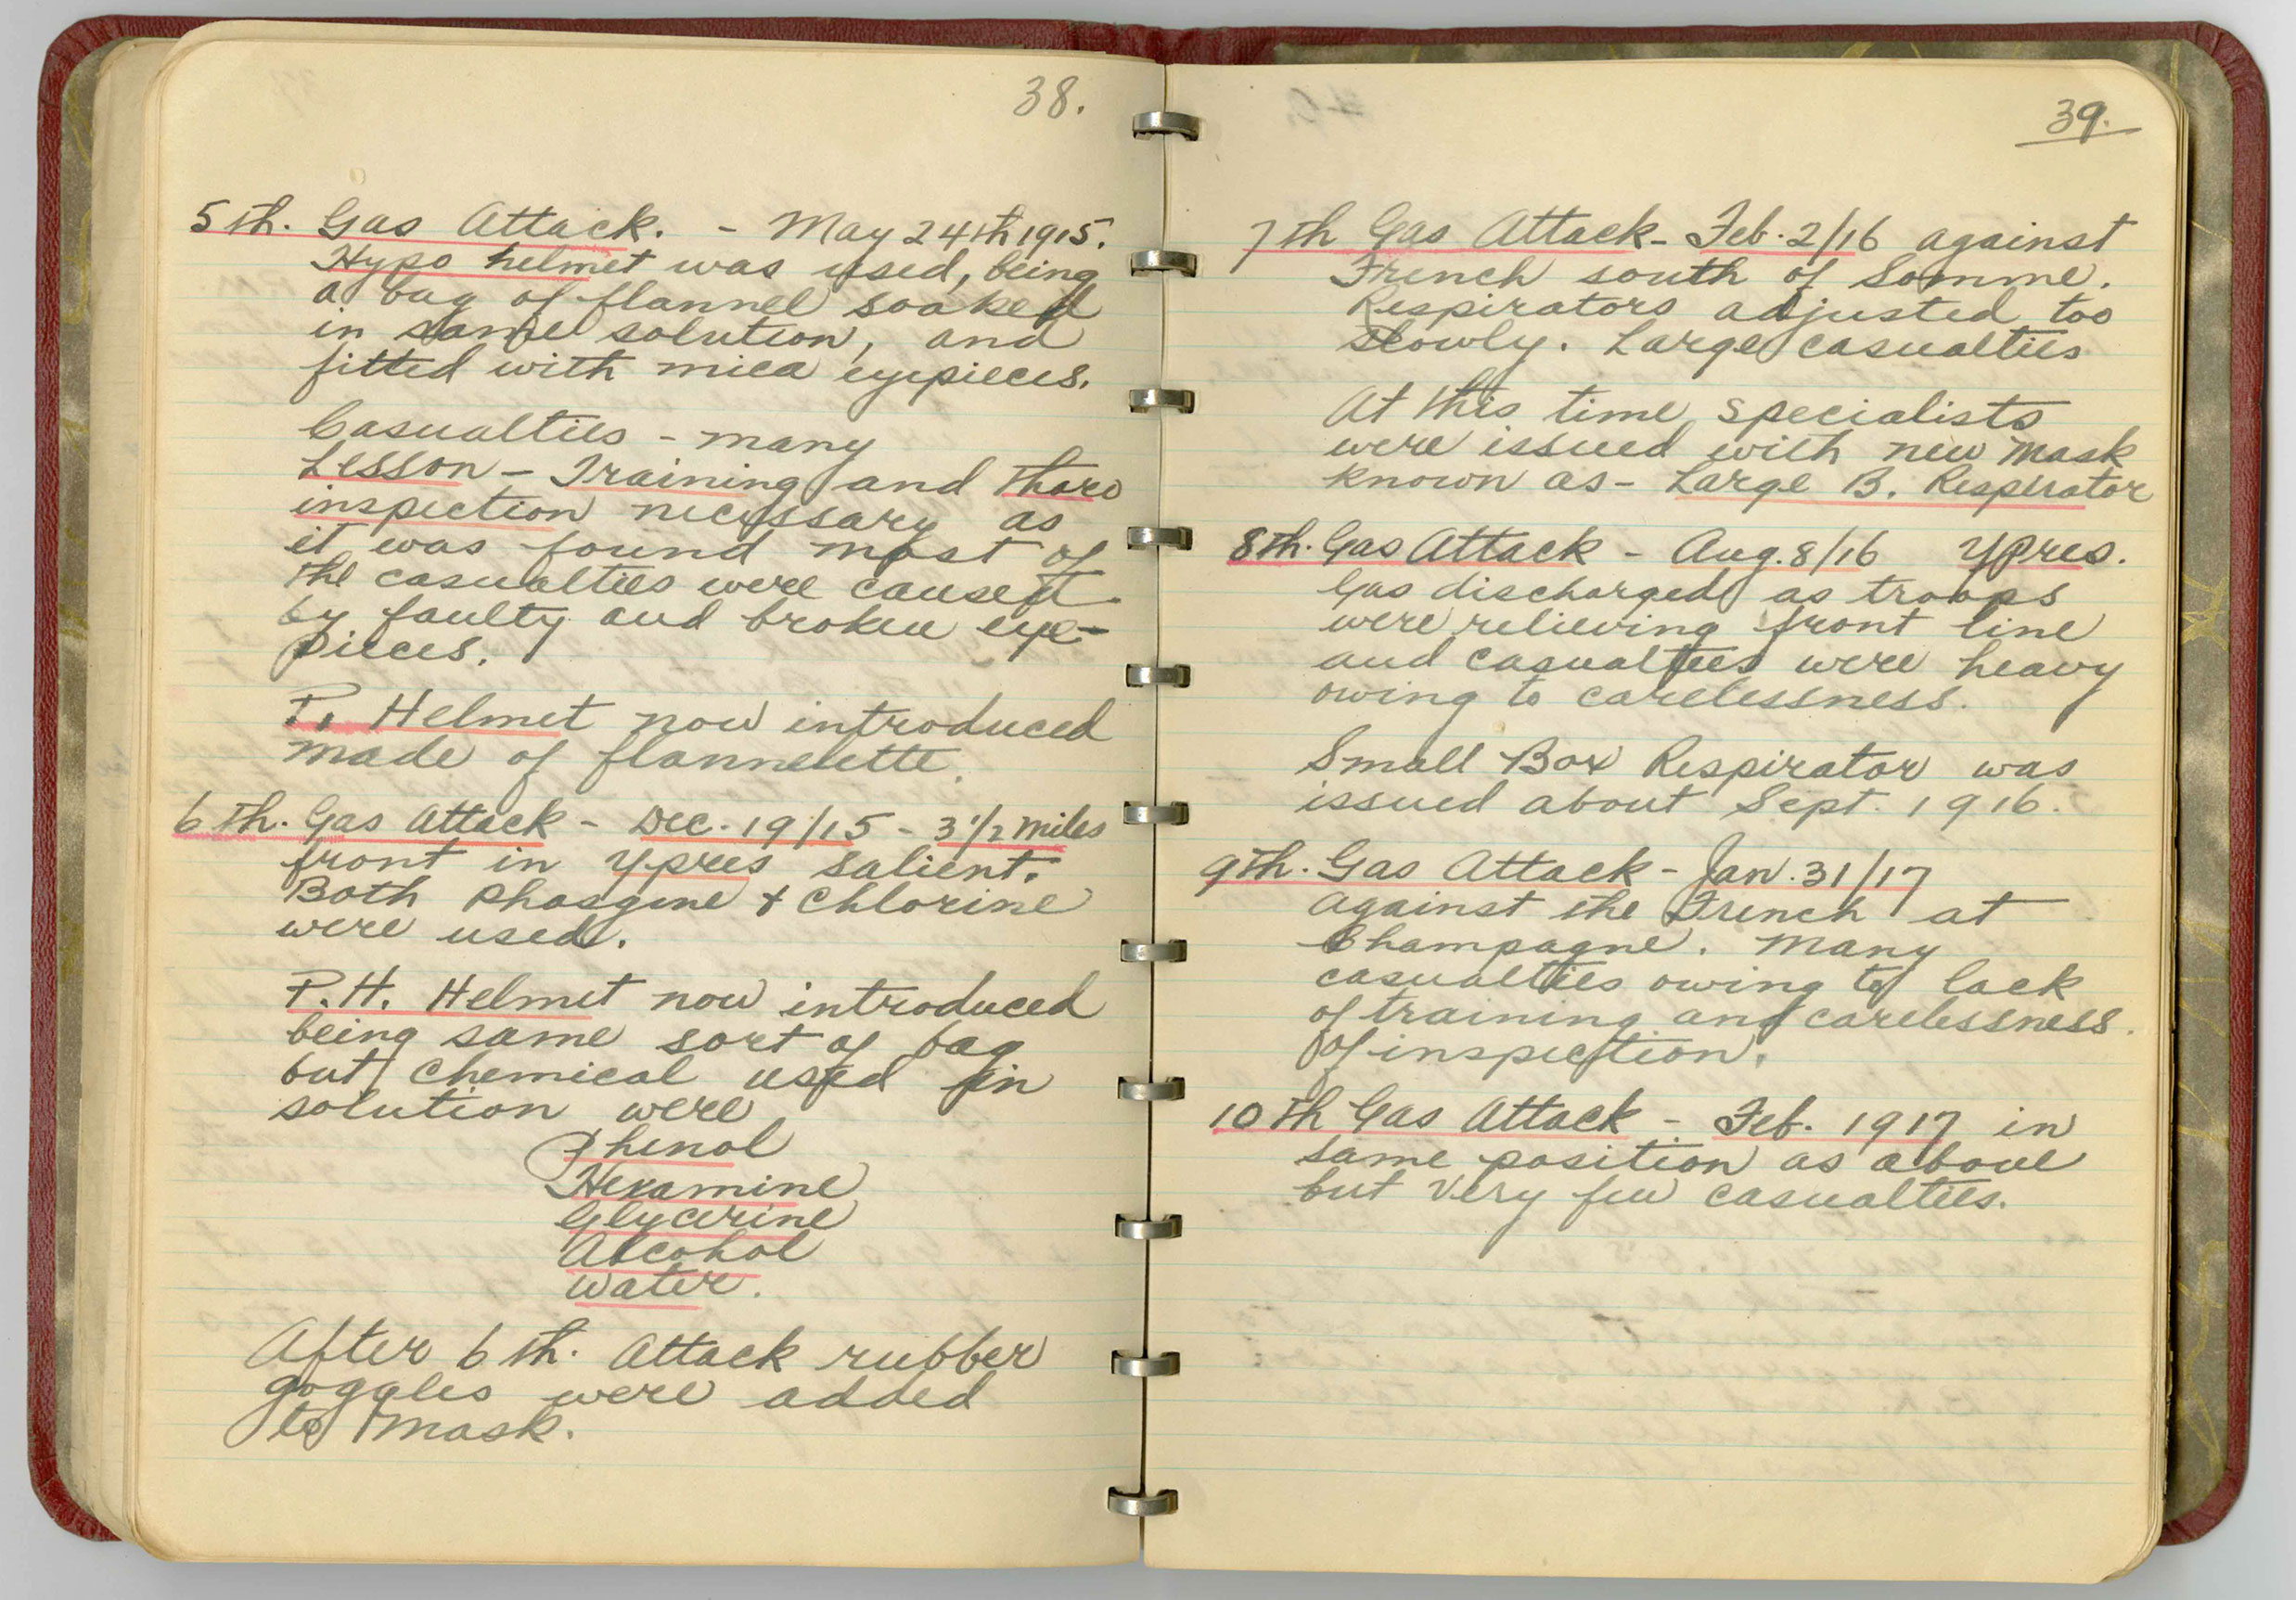 38.
5th. Gas Attack. - May 24th 1915.
Hypo helmet was used, being
a bag of flannel soaked
in same solution, and
fitted with mica eyepieces.
Casualties - many
Lesson - Training and Thoro
inspection necessary as
it was found most of
the casualties were caused
by faulty and broken eye-
pieces.
P. Helmet now introduced
made of flannelette.
6th. Gas Attack - Dec. 19/15 - 3 1/2 miles
front in Ypres salient.
Both Phosgene + Chlorine
were used.
P.H. Helmet now introduced
being same sort of bag
but chemical used in
solution were
Phenol
Hexamine
Glycerine
Alcohol
Water.
After 6th. Attack rubber
goggles were added
to mask.
39.
7th Gas Attack - Feb. 2/16 against
French south of Somme.
Respirators adjusted too
slowly. Large casualties
At this time specialists
were issued with new mask
known as - Large B. Respirator
8th. Gas Attack - Aug. 8/16 Ypres.
Gas discharged as troops
were relieving front line
and casualties were heavy
owing to carelessness.
Small Box Respirator was
issued about Sept. 1916.
9th. Gas Attack - Jan. 31/17
against the French at
Champagne. Many
casualties owing to lack
of training and carelessness.
of inspection.
10th Gas Attack - Feb. 1917 in
same position as above
but very few casualties.